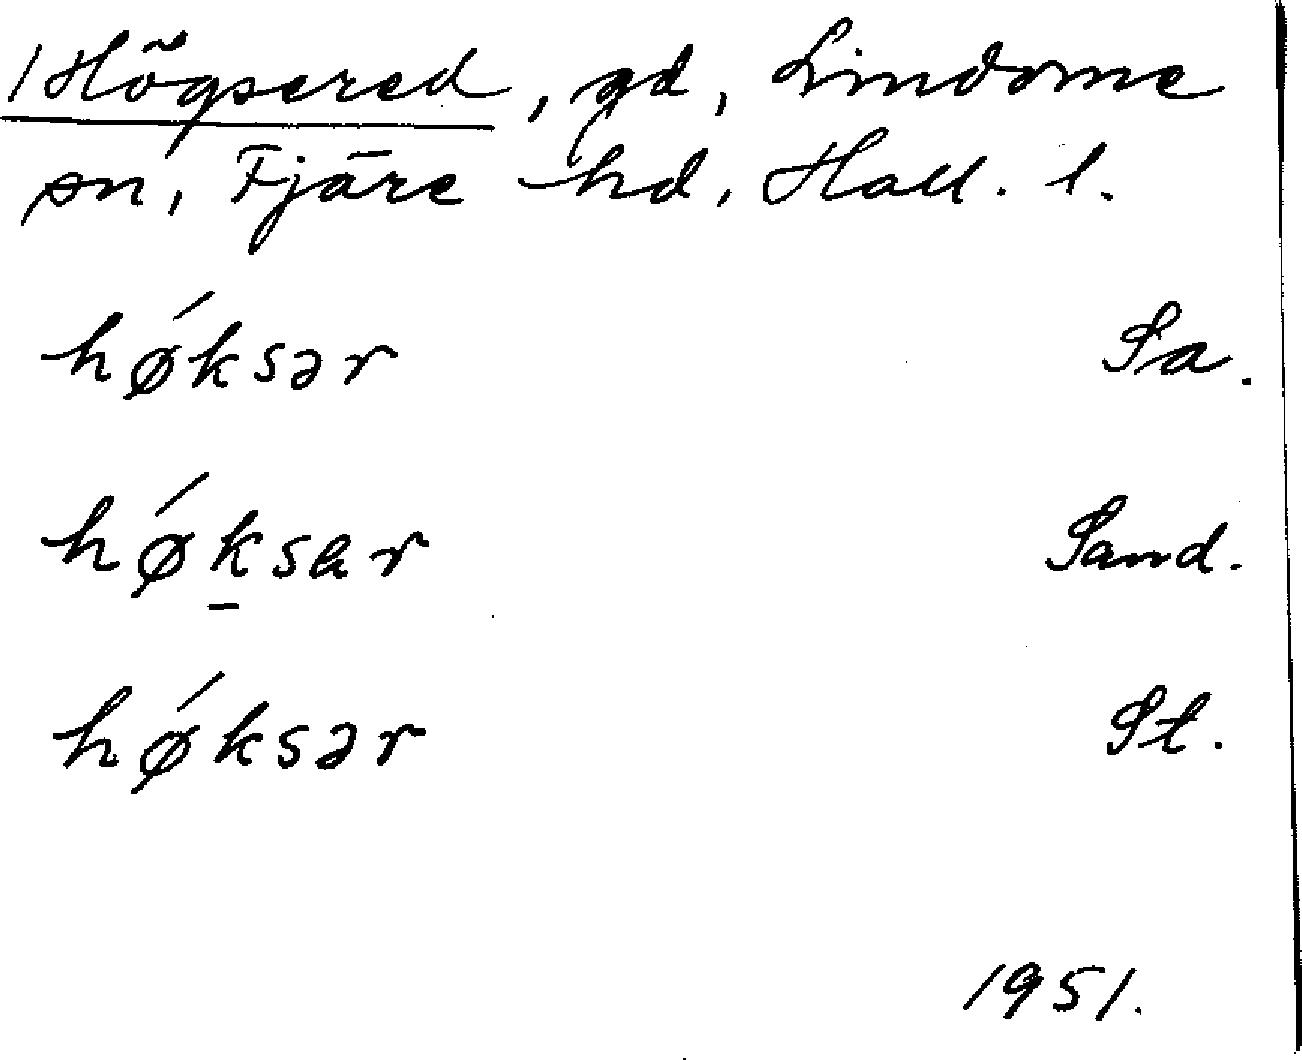 Högsered, gd, Lindome
sn, Fjäre hd, Hall. l.
hǿksər Sa.
hǿk̠sar Sand.
hǿksər St.
1951.